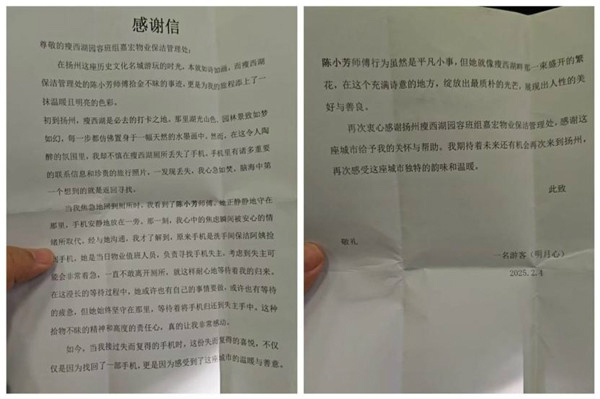 感谢信
尊敬的瘦西湖园容班组嘉宏物业保洁管理处:
在扬州这座历史文化名城游玩的时光,本就如诗如画,而瘦西湖
保洁管理处的陈小芳师傅拾金不昧的事迹,更是为我的旅程添上了一
抹温暖且明亮的色彩。
初到扬州,瘦西湖是必去的打卡之地,那里湖光山色、园林景致如梦
如幻,每一步都仿佛置身于一幅天然的水墨画中。然而,在这令人陶
醉的氛围里,我却不慎在瘦西湖厕所丢失了手机。手机里有诸多重要
的联系信息和珍贵的旅行照片,一发现丢失,我心急如焚,脑海中第
一个想到的就是返回寻找。
当我焦急地回到厕所时,我看到了陈小芳师傅。她正静静地守在
那里,手机安静地放在一旁。那一刻,我心中的焦虑瞬间被安心的情
绪所取代。经与她沟通,我才了解到,原来手机是洗手间保洁阿姨拾
到手机,她是当日物业值班人员,负责寻找手机失主,考虑到失主可
能会非常着急,一直不敢离开厕所,就这样耐心地等待着我的归来。
在这漫长的等待过程中,她或许也有自己的事情要做,或许也有等待
的疲惫,但她始终坚守在那里,等待着将手机归还到失主手中。这种
拾物不昧的精神和高度的责任心,真的让我非常感动。
如今,当我接过失而复得的手机时,这份失而复得的喜悦,不仅
仅是因为找回了一部手机,更是因为感受到了这座城市的温暖与善意。
陈小芳师傅行为虽然是平凡小事,但她就像瘦西湖畔那一束盛开的繁
花,在这个充满诗意的地方,绽放出最质朴的光芒,展现出人性的美
好与善良。
再次衷心感谢扬州瘦西湖园容班组嘉宏物业保洁管理处,感谢
这座城市给予我的关怀与帮助。我期待着未来还有机会再次来到扬州,
再次感受这座城市独特的韵味和温暖。
此致
敬礼
一名游客(明月心)
2025.2.4